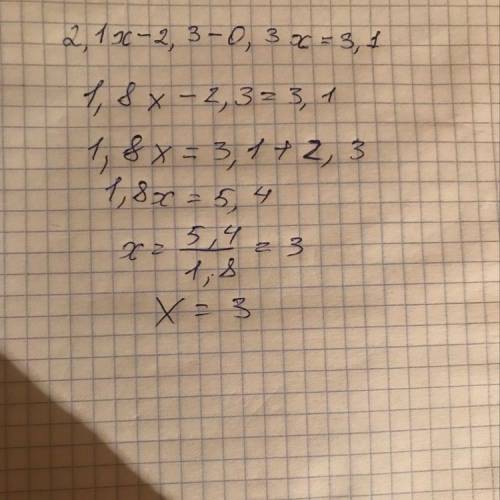 2,1x-2,3-0,3x=3,1
1,8x-2,3=3,1
1,8x=3,1+2,3
1,8x=5,4
x=5,4/1,8=3
X=3